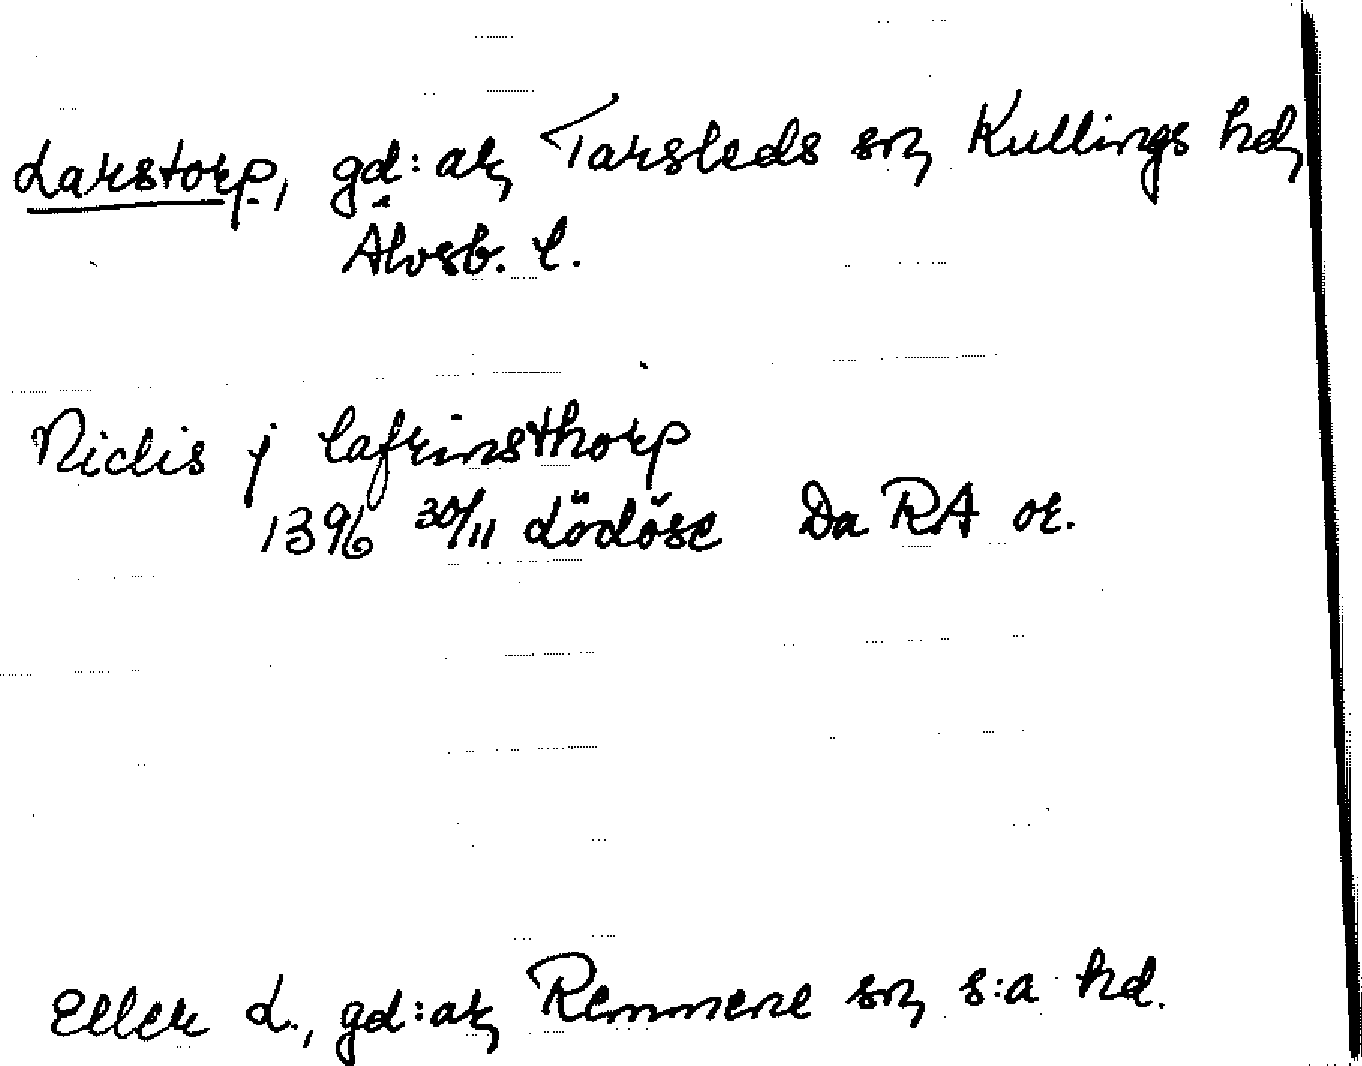 Larstorp, gd:ar, Tarsleds sn, Kullings hd,
Älvsb. l.
Niclis j lafrinsthorp
1396 30/11 Lödöse Da RA or.
Eller L., gd:ar, Remmene sn, s:a hd.